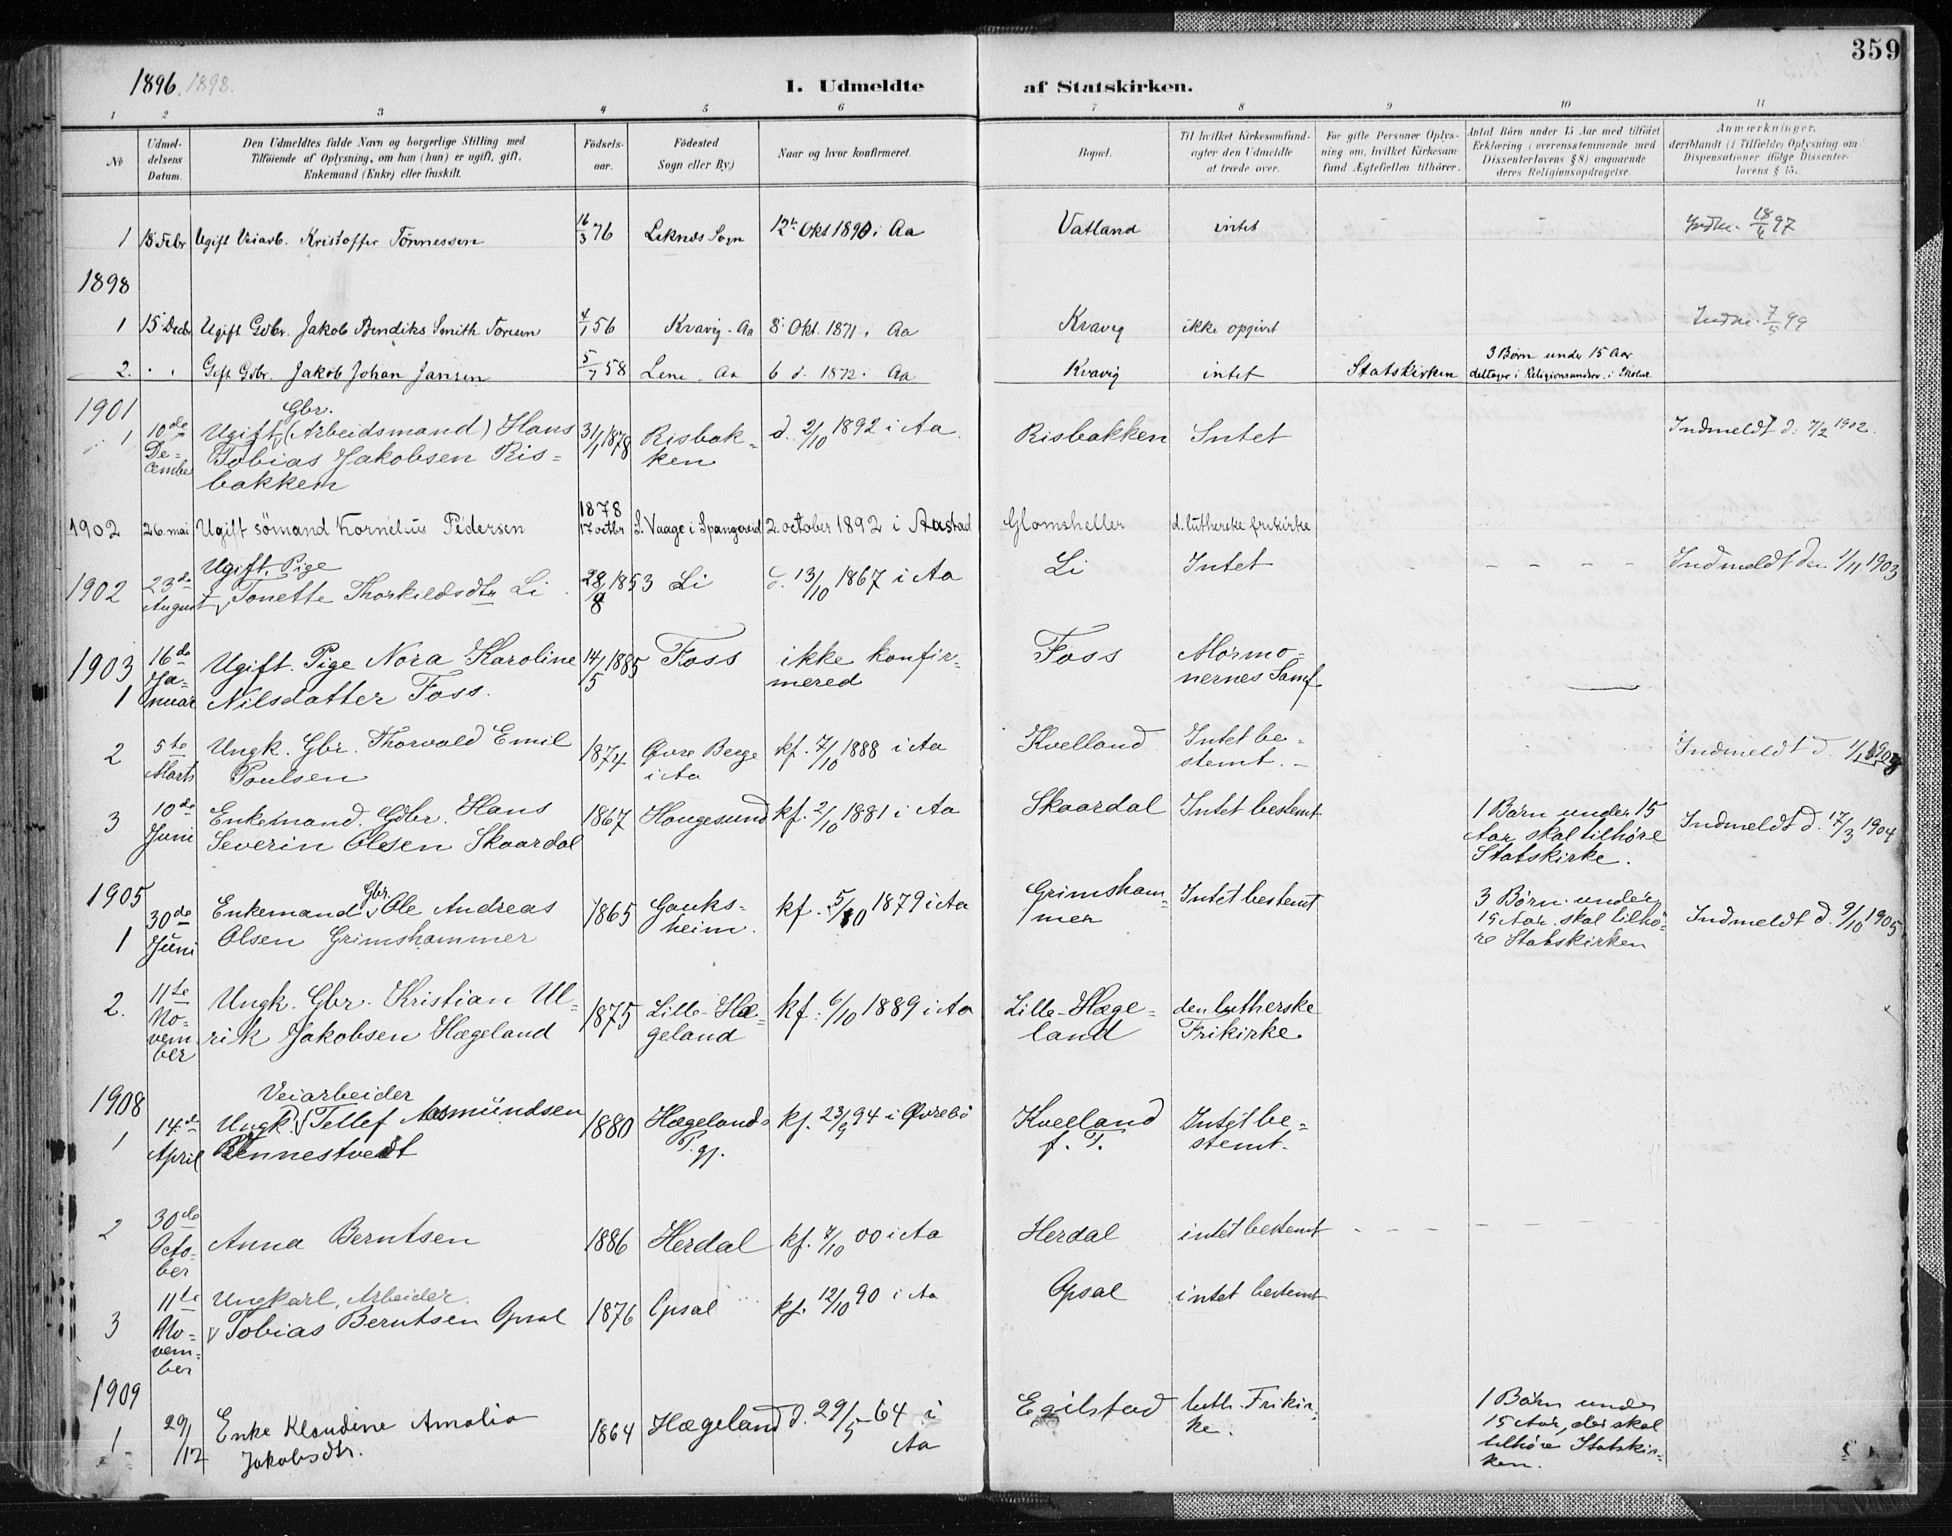 359
1896. 1898.
I. Udmeldte af Statskirken.
1 2 3 4 5 6 7 8 9 10 11
No
Udmeldelsens Datum.
Den Udmeldtes fulde Navn og borgerlige Stilling med
Tilføiende af Oplysning, om han (hun) er ugift, gift,
Enkemand (Enke) eller fraskilt.
Fødselsaar.
Fødested
Sogn eller By.)
Naar og hvor konfirmeret.
Bopæl.
Til hvilket Kirkesamfund
agter den Udmeldte
at træde over.
For gifte Personer Oplys-
ning om, hvilket Kirkesam-
fund Ægtefællen tilhører.
Antal Børn under 15 Aar med tilføiet
Erklæring (overensstemmende med
Dissenterlovens § 8) angaaende
deres Religionsopdragelse.
Anmærkninger,
deriblandt (i Tilfælde) Oplysning om
Dispensationer ifølge Dissenter-
lovens § 15.
1 18 Febr Ugift Veiarb. Kristoffer Tönnessen 16/3 76 Leknes Sogn 12te Okt 1890 i Aa Vatland intet Indm. 18/4 97
1898
1 15 Decbr Ugift Gdbr. Jakob Bendiks Smith Toresen 4/1 56 Kvavig. Aa 8 Okt. 1871. Aa Kvavig ikke opgivet Indm. 7/5 99
2. " " Gift Gdbr. Jakob Johan Jansen 5/7 58 Lene, Aa 6 d. 1872. Aa Kvavig intet Statskirken 3 Børn under 15 Aar
deltager i Religionsunderv. i Skolen
1901
1 10de December Ugift Gbr. (Arbeidsmand) Hans
Tobias Jakobsen Ris-
bakken 31/1 1878 Risbakken d. 2/10 1892 i Aa. Risbakken Intet Indmeldt d. 7/2 1902.
1902 26. mai Ugift sömand Kornelius Pedersen 1878 17 octbr S. Vaage i Spangereid 2. october 1892 i Aastad Glomsheller d. lutherske frikirke
1902 23de August Ugift. Pige
Tonette Thorkildsdtr Li 28/8 1853 Li d. 13/10 1867 i Aa Li Intet Indmeldt den 1/11 1903
1903
1 16de Januar Ugift. Pige Nora Karoline
Nilsdatter Foss. 14/5 1885 Foss ikke konfir-
mered Foss Mormo-
nernes Samf
2 5te Marts Ungk. Gbr. Thorvald Emil
Poulsen 1874 Øvre Berge
i Aa kf. 7/10 1888 i Aa Kvelland Intet be-
stemt. Indmeldt d.
3 10de Juni Enkemand. Gdbr. Hans
Severin Olsen Skaardal 1867 Haugesund kf. 2/10 1881 i Aa Skaardal Intet bestemt 1 Barn under 15
Aar, skal tilhøre
Statskirke. Indmeldt d. 17/3 1904
1905
1 30de Juni Enkemand Gbr. Ole Andreas
Olsen Grimshammer 1865 Gauks-
heim. kf. 5/10 1879 i Aa Grimsham-
mer Intet bestemt 3 Børn under
15 Aar, skal tilhø-
re Statskirken Indmeldt d. 9/10 1905
2. 11te November Ungk. Gbr. Kristian Ul-
rik Jakobsen Hægeland 1875 Lille-Hæ-
geland kf. 6/10 1889 i Aa Lille-Hæge-
land den lutherske
Frikirke.
1908
1 14de April Veiarbeider
Ungk. Tellef Aasmundsen
Rennestvedt 1880 Hægelands
P.gj. kf. 23/9 94 i Øvrebö Kvelland
f. T. Intet be-
stemt.
2 30de October Anna Berntsen 1886 Herdal kf. 7/10 00 i Aa Herdal intet bestemt
3 11te November Ungkarl, Arbeider.
Tobias Berntsen Opsal 1876 Opsal kf. 12/10 90 i Aa Opsal intet bestemt
1909
1 29/12 Enke Klaudine Amalia
Jakobsdtr. 1864 Hægeland d. 29/5 64 i
Aa Egilstad luth. Frikir-
ke. 1 Barn under
15 Aar, der skal
tilhøre Statskir-
ken.